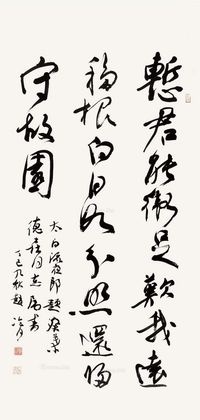 慙君能衛足歎我遠
移根白日如分照還歸
守故園
太白流夜郎題葵葉
德葊同志屬書
丁巳九秋